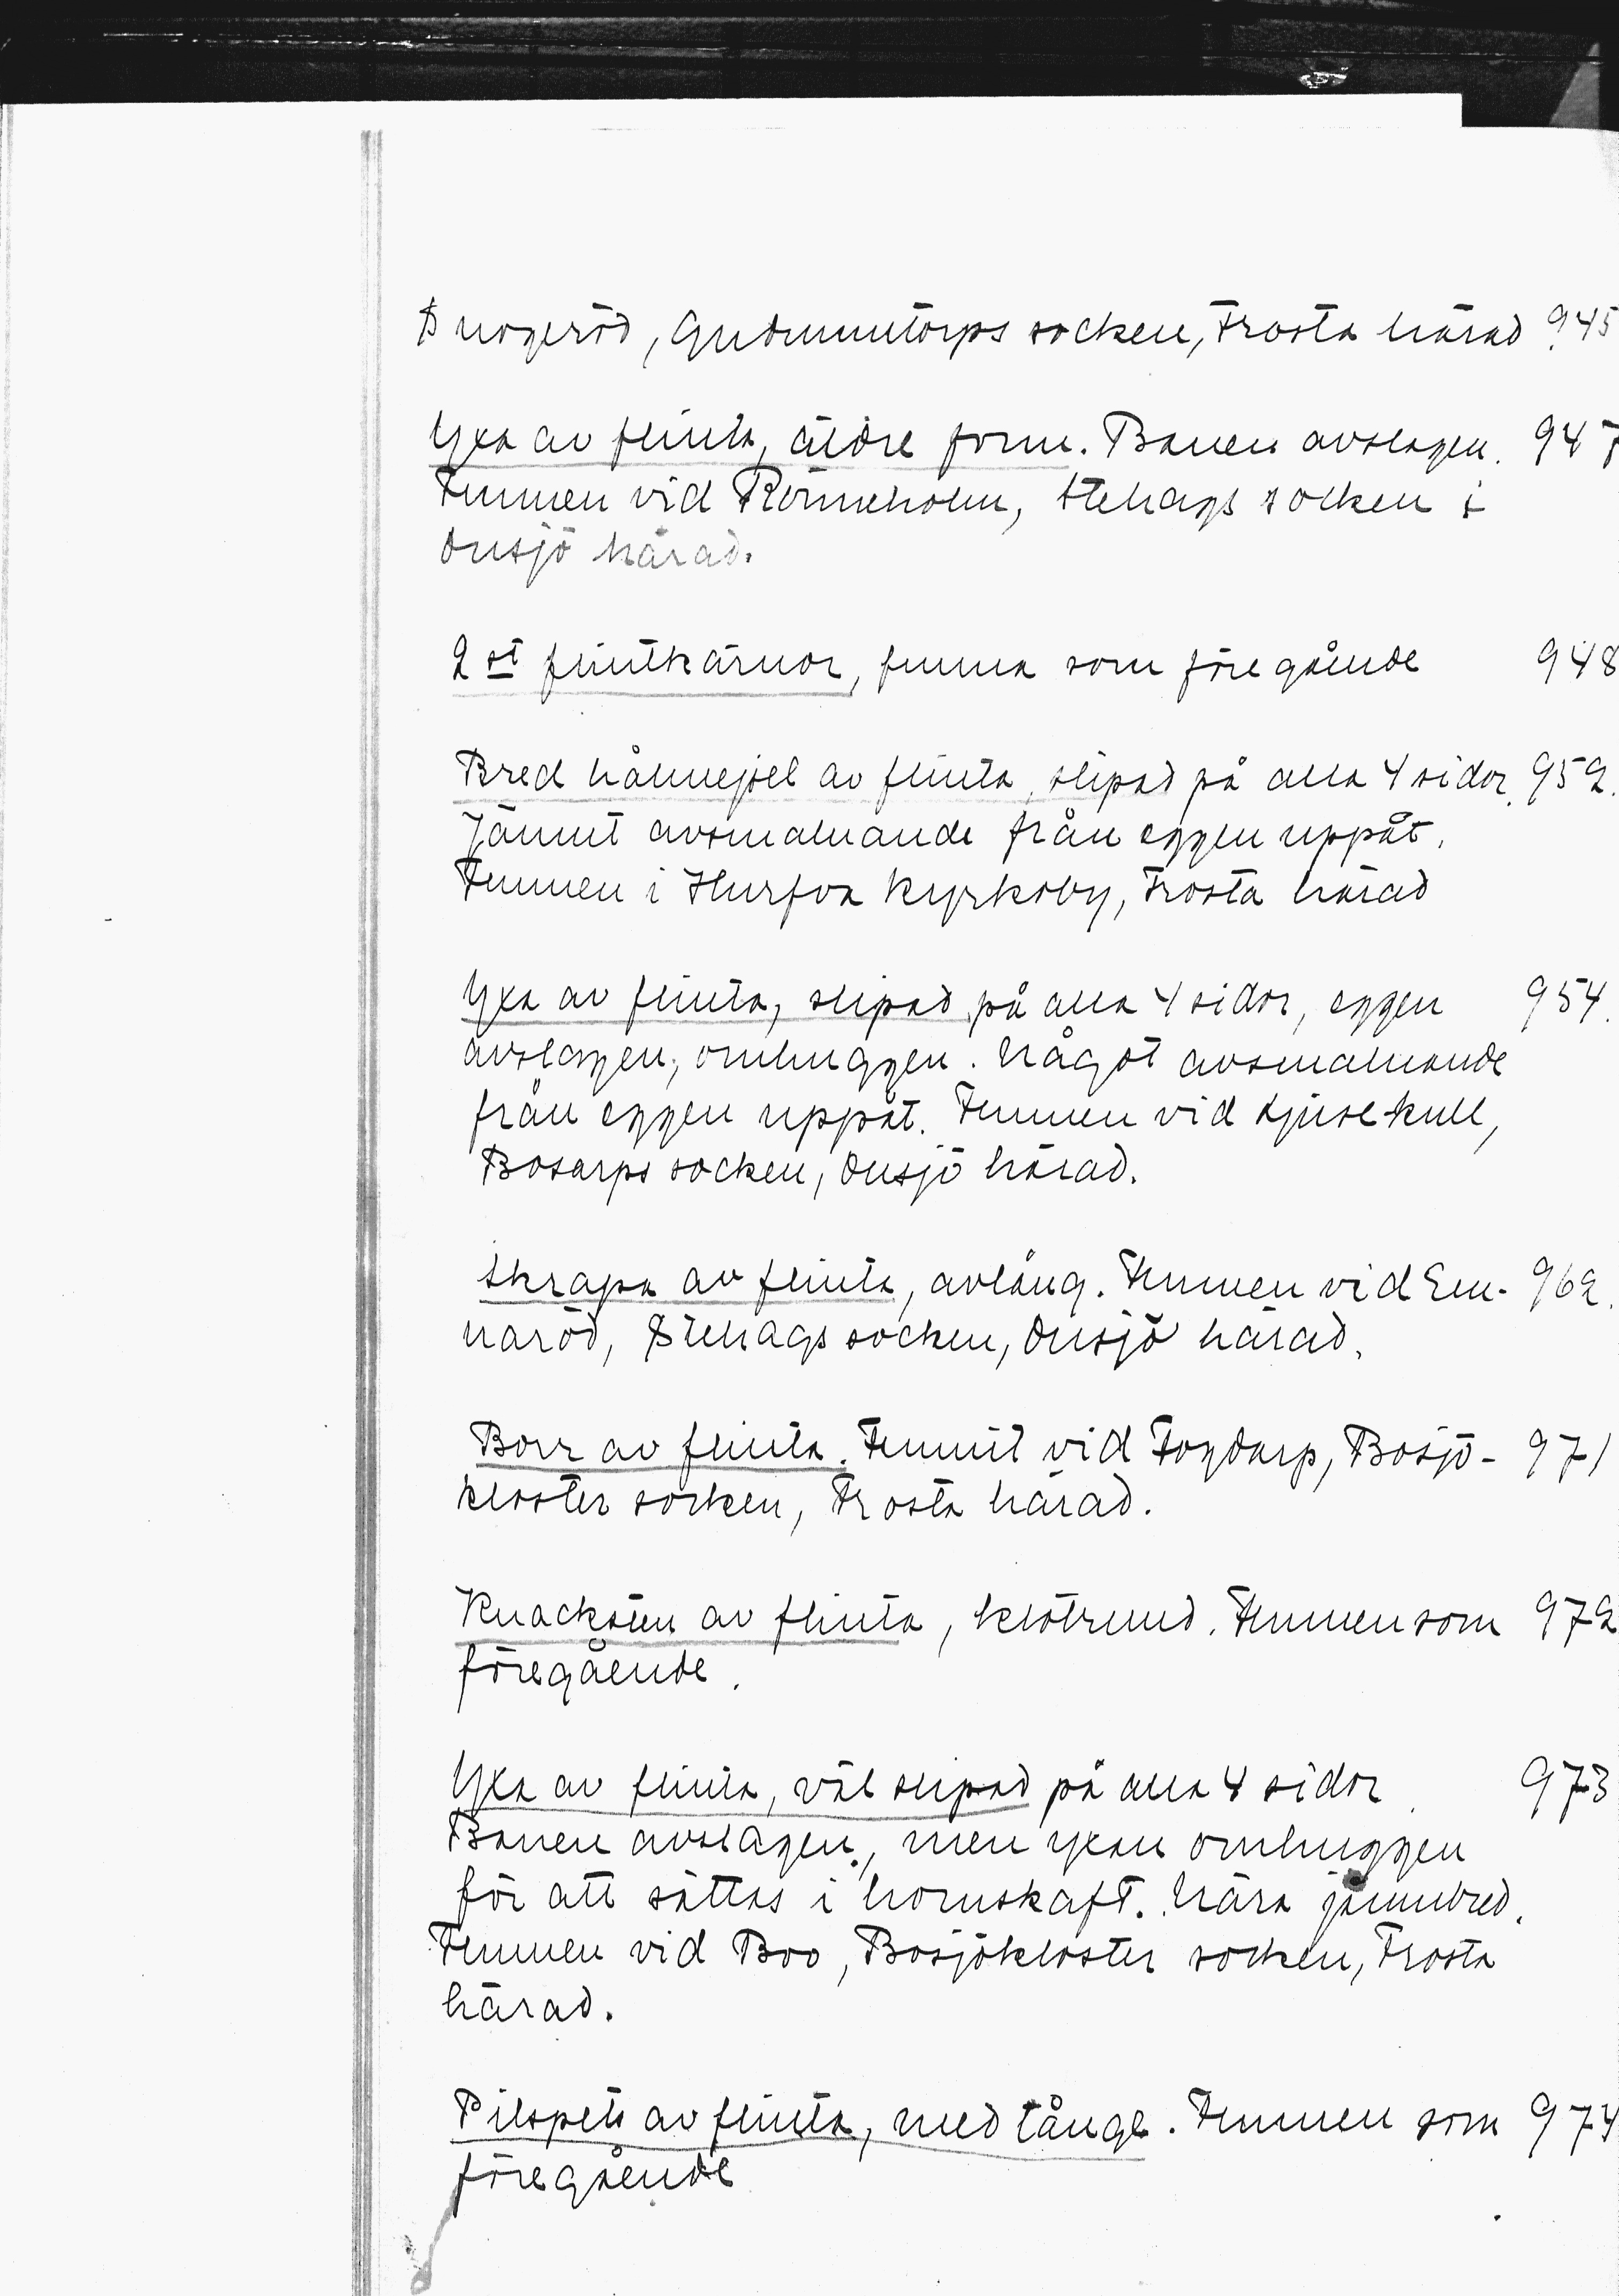 Snogeröd, Gudmuntorps socken, Frosta härad 945
Yxa av flinta, äldre form. Banen avslagen. 947
Funnen vid Rönneholm, Stehags socken i
Onsjö härad.
2 st flintkärnor, funna som föregående 948
Bred hålmejsel av flinta, slipad på alla 4 sidor. 952.
Jämnt avsmalnande från eggen uppåt.
Funnen i Hurfva Kyrkoby, Frosta härad
Yxa av flinta, slipad på alla 4 sidor, eggen 954.
avslagen, omhuggen. Något avsmalnande
från eggen uppåt. Funnen vid Ljusekull,
Bosarps socken, Onsjö härad.
Skrapa av flinta, avlång. Funnen vid Em- 962.
naröd, Stehags socken, Onsjö härad.
Borr av flinta. Funnit vid Fogdarp, Bosjö- 971
kloster socken, Frosta härad.
Knacksten av flinta, klotrund. Funnen som 972
föregående.
Yxa av flinta, väl slipad på alla 4 sidor. 973
Banen avslagen, men yxan omhuggen
för att sättas i hornskaft. Nära jämnbred.
Funnen vid Boo, Bosjökloster socken, Frosta
härad.
Pilspets av flinta, med tånge. Funnen som 974
föregående